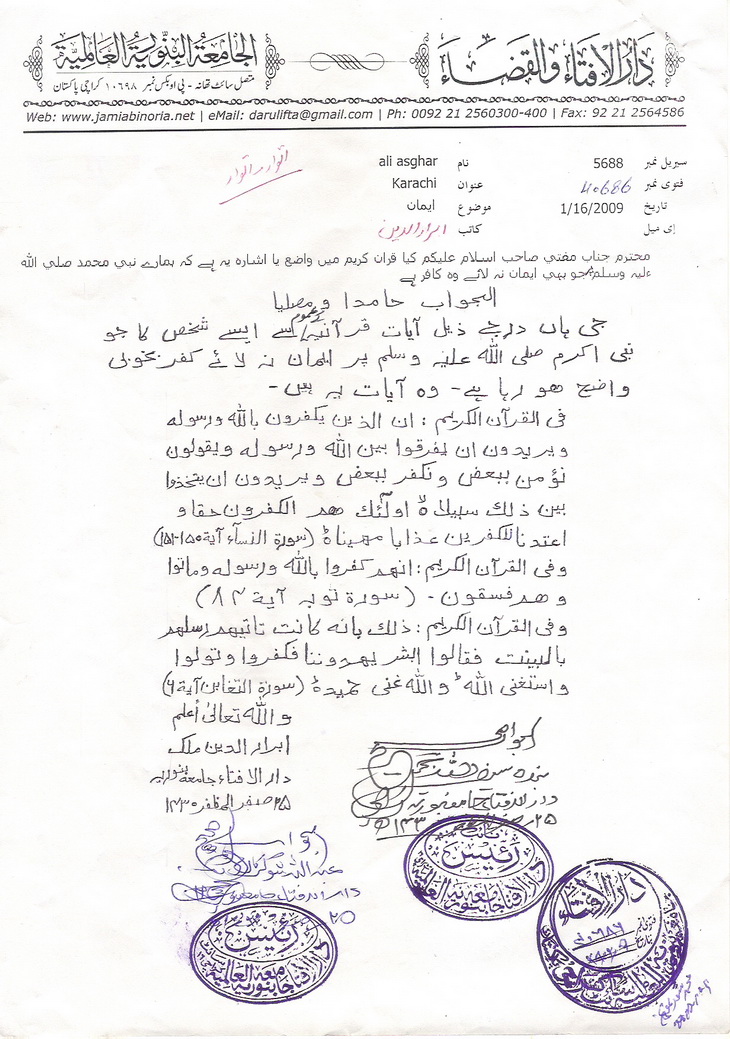 دار الافتاء والقضاء
الجامعة البنورية العالمية
متصل سائٹ تھانہ - پی او بکس نمبر ۱۰۶۹۸ کراچی پاکستان
Web: www.jamiabinoria.net | eMail: darulifta@gmail.com | Ph: 0092 21 2560300-400 | Fax: 92 21 2564586
سیریل نمبر 5688 نام ali asghar
فتوی نمبر 40686 عنوان Karachi
تاریخ 1/16/2009 موضوع ایمان
ای میل کاتب ابرارالدین
اتوار در اتوار
محترم جناب مفتي صاحب اسلام عليكم كيا قران كريم ميں واضع يا اشاره يہ ہے كہ ہمارے نبي محمد صلي الله
عليہ وسلم پر جو بھي ايمان نہ لائے وه كافر ہے
الجواب حامدا و مصلیا
جی ہاں درجے ذیل آیات قرآنیہ کے عموم سے ایسے شخص کا جو
نبی اکرم صلی اللہ علیہ وسلم پر ایمان نہ لائے کفر بخوبی
واضح ہو رہا ہے - وہ آیات یہ ہیں -
فی القرآن الکریم : ان الذین یکفرون باللہ ورسولہ
ویریدون ان یفرقوا بین اللہ ورسولہ ویقولون
نؤمن ببعض ونکفر ببعض ویریدون ان یتخذوا
بین ذلک سبیلا ہ اولٰئک ھم الکفرون حقا و
اعتدنا للکفرین عذابا مھینا ہ (سورۃ النسآء آیۃ ۱۵۰-۱۵۱)
وفی القرآن الکریم : انھم کفروا باللہ ورسولہ وماتوا
وھم فسقون - (سورۃ توبہ آیۃ ۸۴)
وفی القرآن الکریم : ذلک بانہ کانت تاتیھم رسلھم
بالبینت فقالوا ابشر یھدوننا فکفروا وتولوا
واستغنی اللہ ط واللہ غنی حمید ہ (سورۃ التغابن آیۃ ۶)
واللہ تعالیٰ أعلم
ابرار الدین ملک
دار الافتاء جامعہ بنوریہ
۲۵ صفر المظفر ۱۴۳۰
الجواب صحیح
دار الافتاء جامعہ بنوریہ
۲۵
الجواب صحیح
۲۵
نائب
رئیس
دار الافتاء جامعہ بنوریہ العالمیة
رئیس
دار الافتاء جامعہ بنوریہ العالمیة
دار الافتاء
فتوی نمبر ۴۰۶۸۶
تاریخ